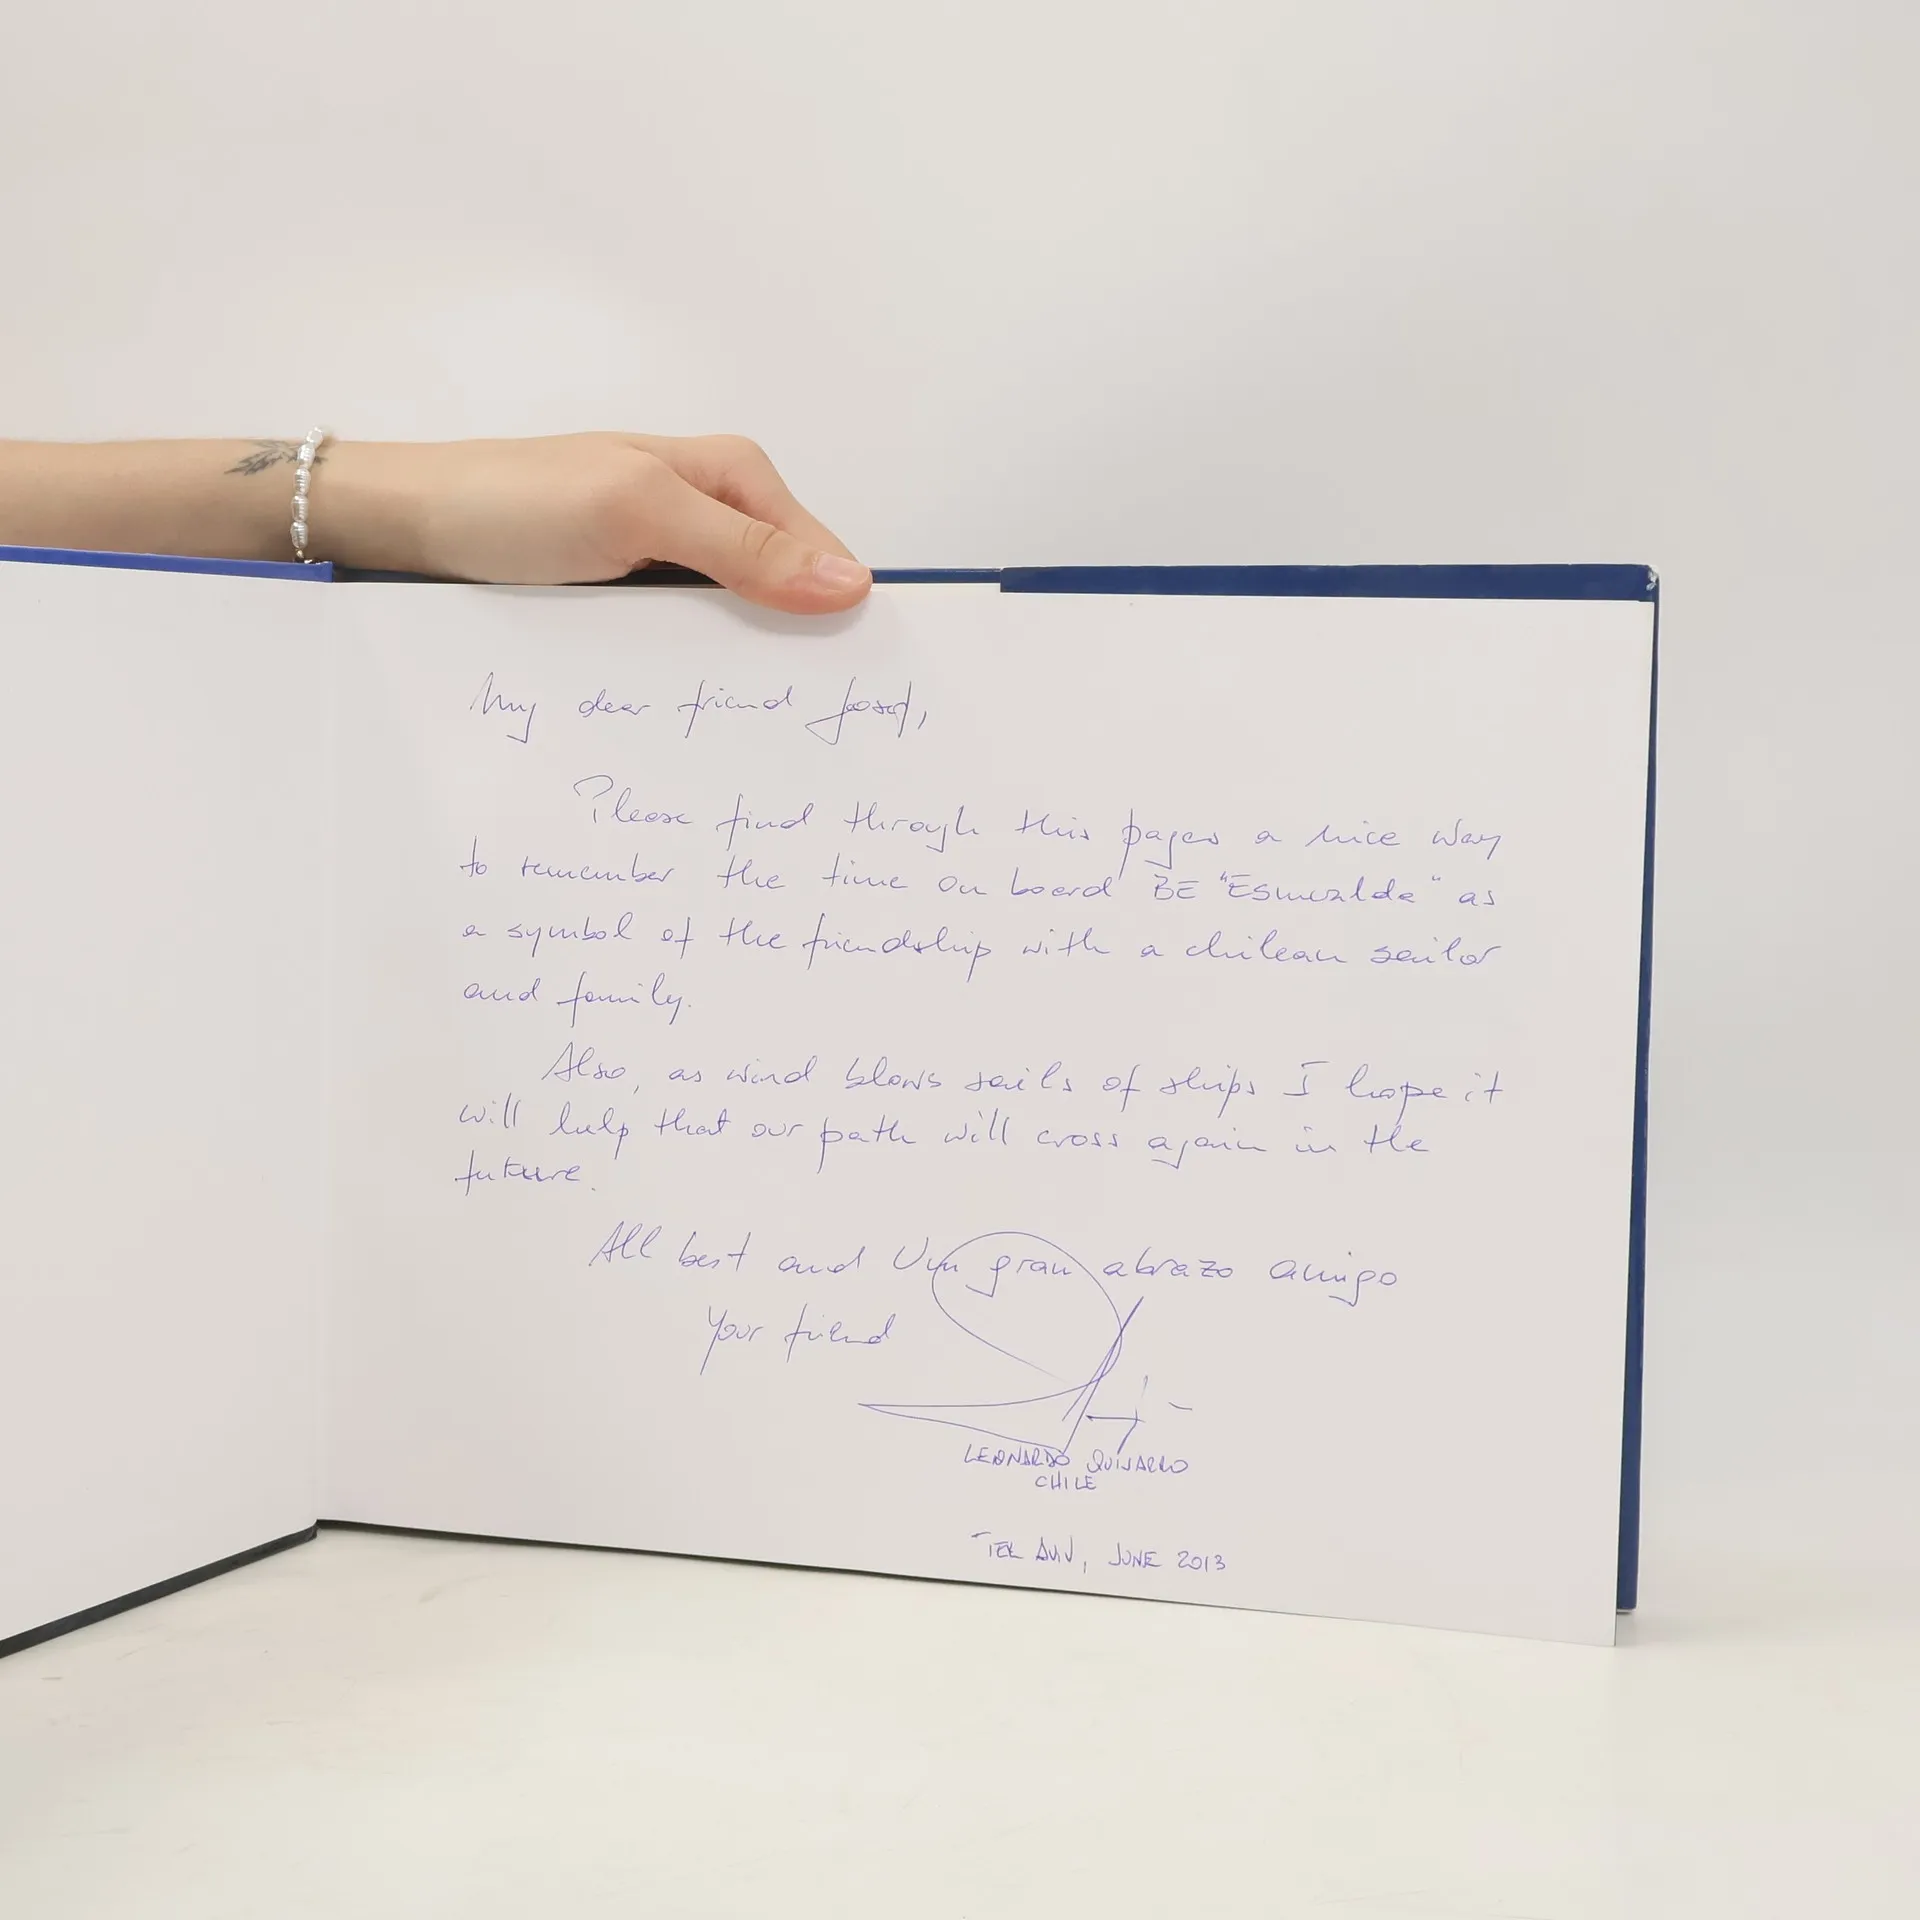 My dear friend Josef,
Please find through this pages a nice way
to remember the time on board BE "Esmeralda" as
a symbol of the friendship with a chilean sailor
and family.
Also, as wind blows sails of ships I hope it
will help that our path will cross again in the
future.
All best and Un gran abrazo amigo
Your friend
LEONARDO QUIJARRO
CHILE
TEL AVIV, JUNE 2013